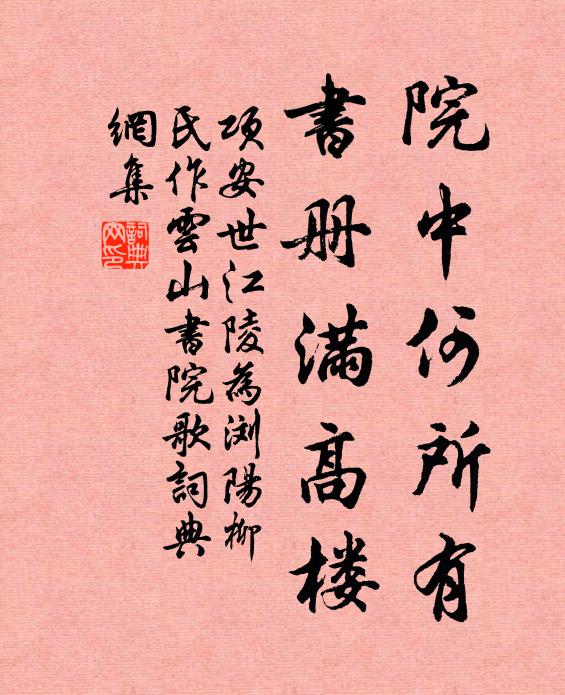 院中何所有
書册滿高楼
項安世江陵為浏陽柳
氏作雲山書院歌詞典
網集
詞典
网印